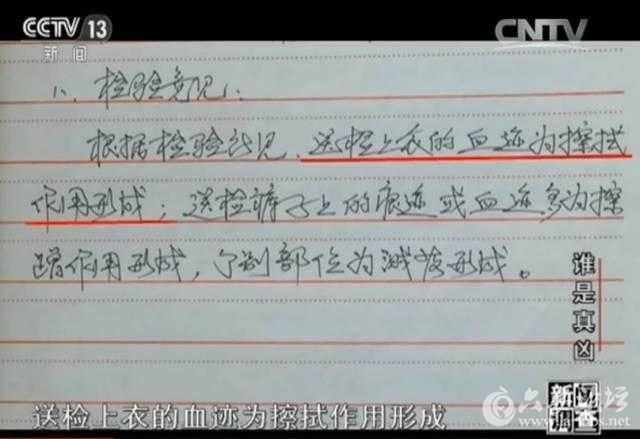 CCTV 13
新闻
CNTV
八、检验意见:
根据检验所见,送检上衣的血迹为擦拭
作用形成;送检裤子上的痕迹或血迹多为擦
蹭作用形成,个别部位为溅落形成。
谁是真凶
新闻
送检上衣的血迹为擦拭作用形成